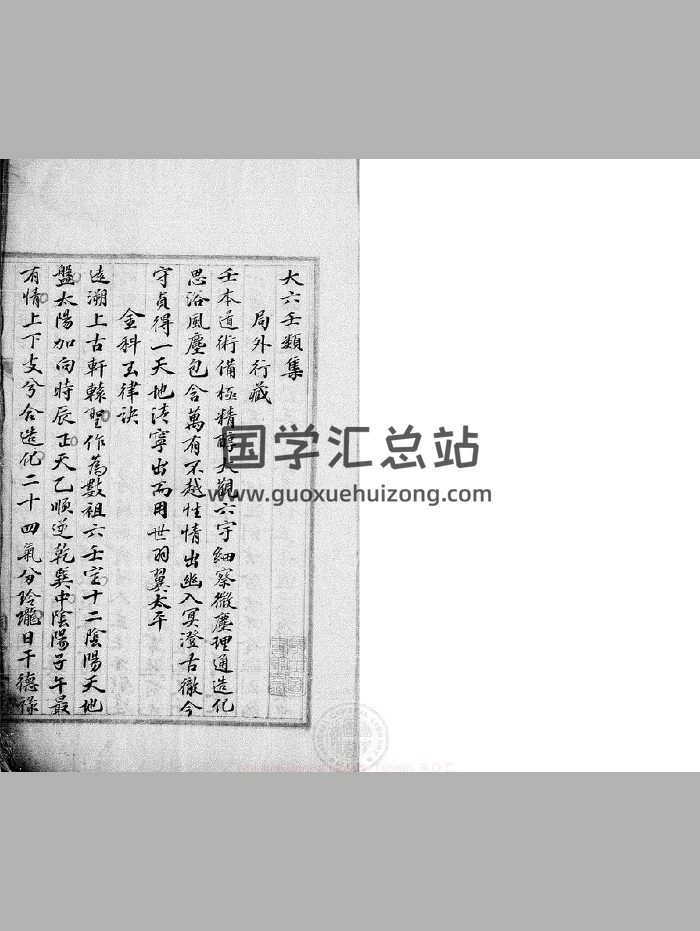 大六壬類集
局外行藏
壬本道術備極精醇大觀六宇細察微塵理通造化
思浴風塵包含萬有不越性情出幽入冥澄古徹今
守貞得一天地清寧出而用世羽翼太平
金科玉律訣
遠溯上古軒轅聖作萬數祖六壬定十二陰陽天地
盤太陽加向時辰正天乙順逆乾巽中陰陽子午最
有情上下支兮合造化二十四氣分玲瓏日干德祿
国学汇总站
www.guoxuehuizong.com
Taiwan, R.O.C.